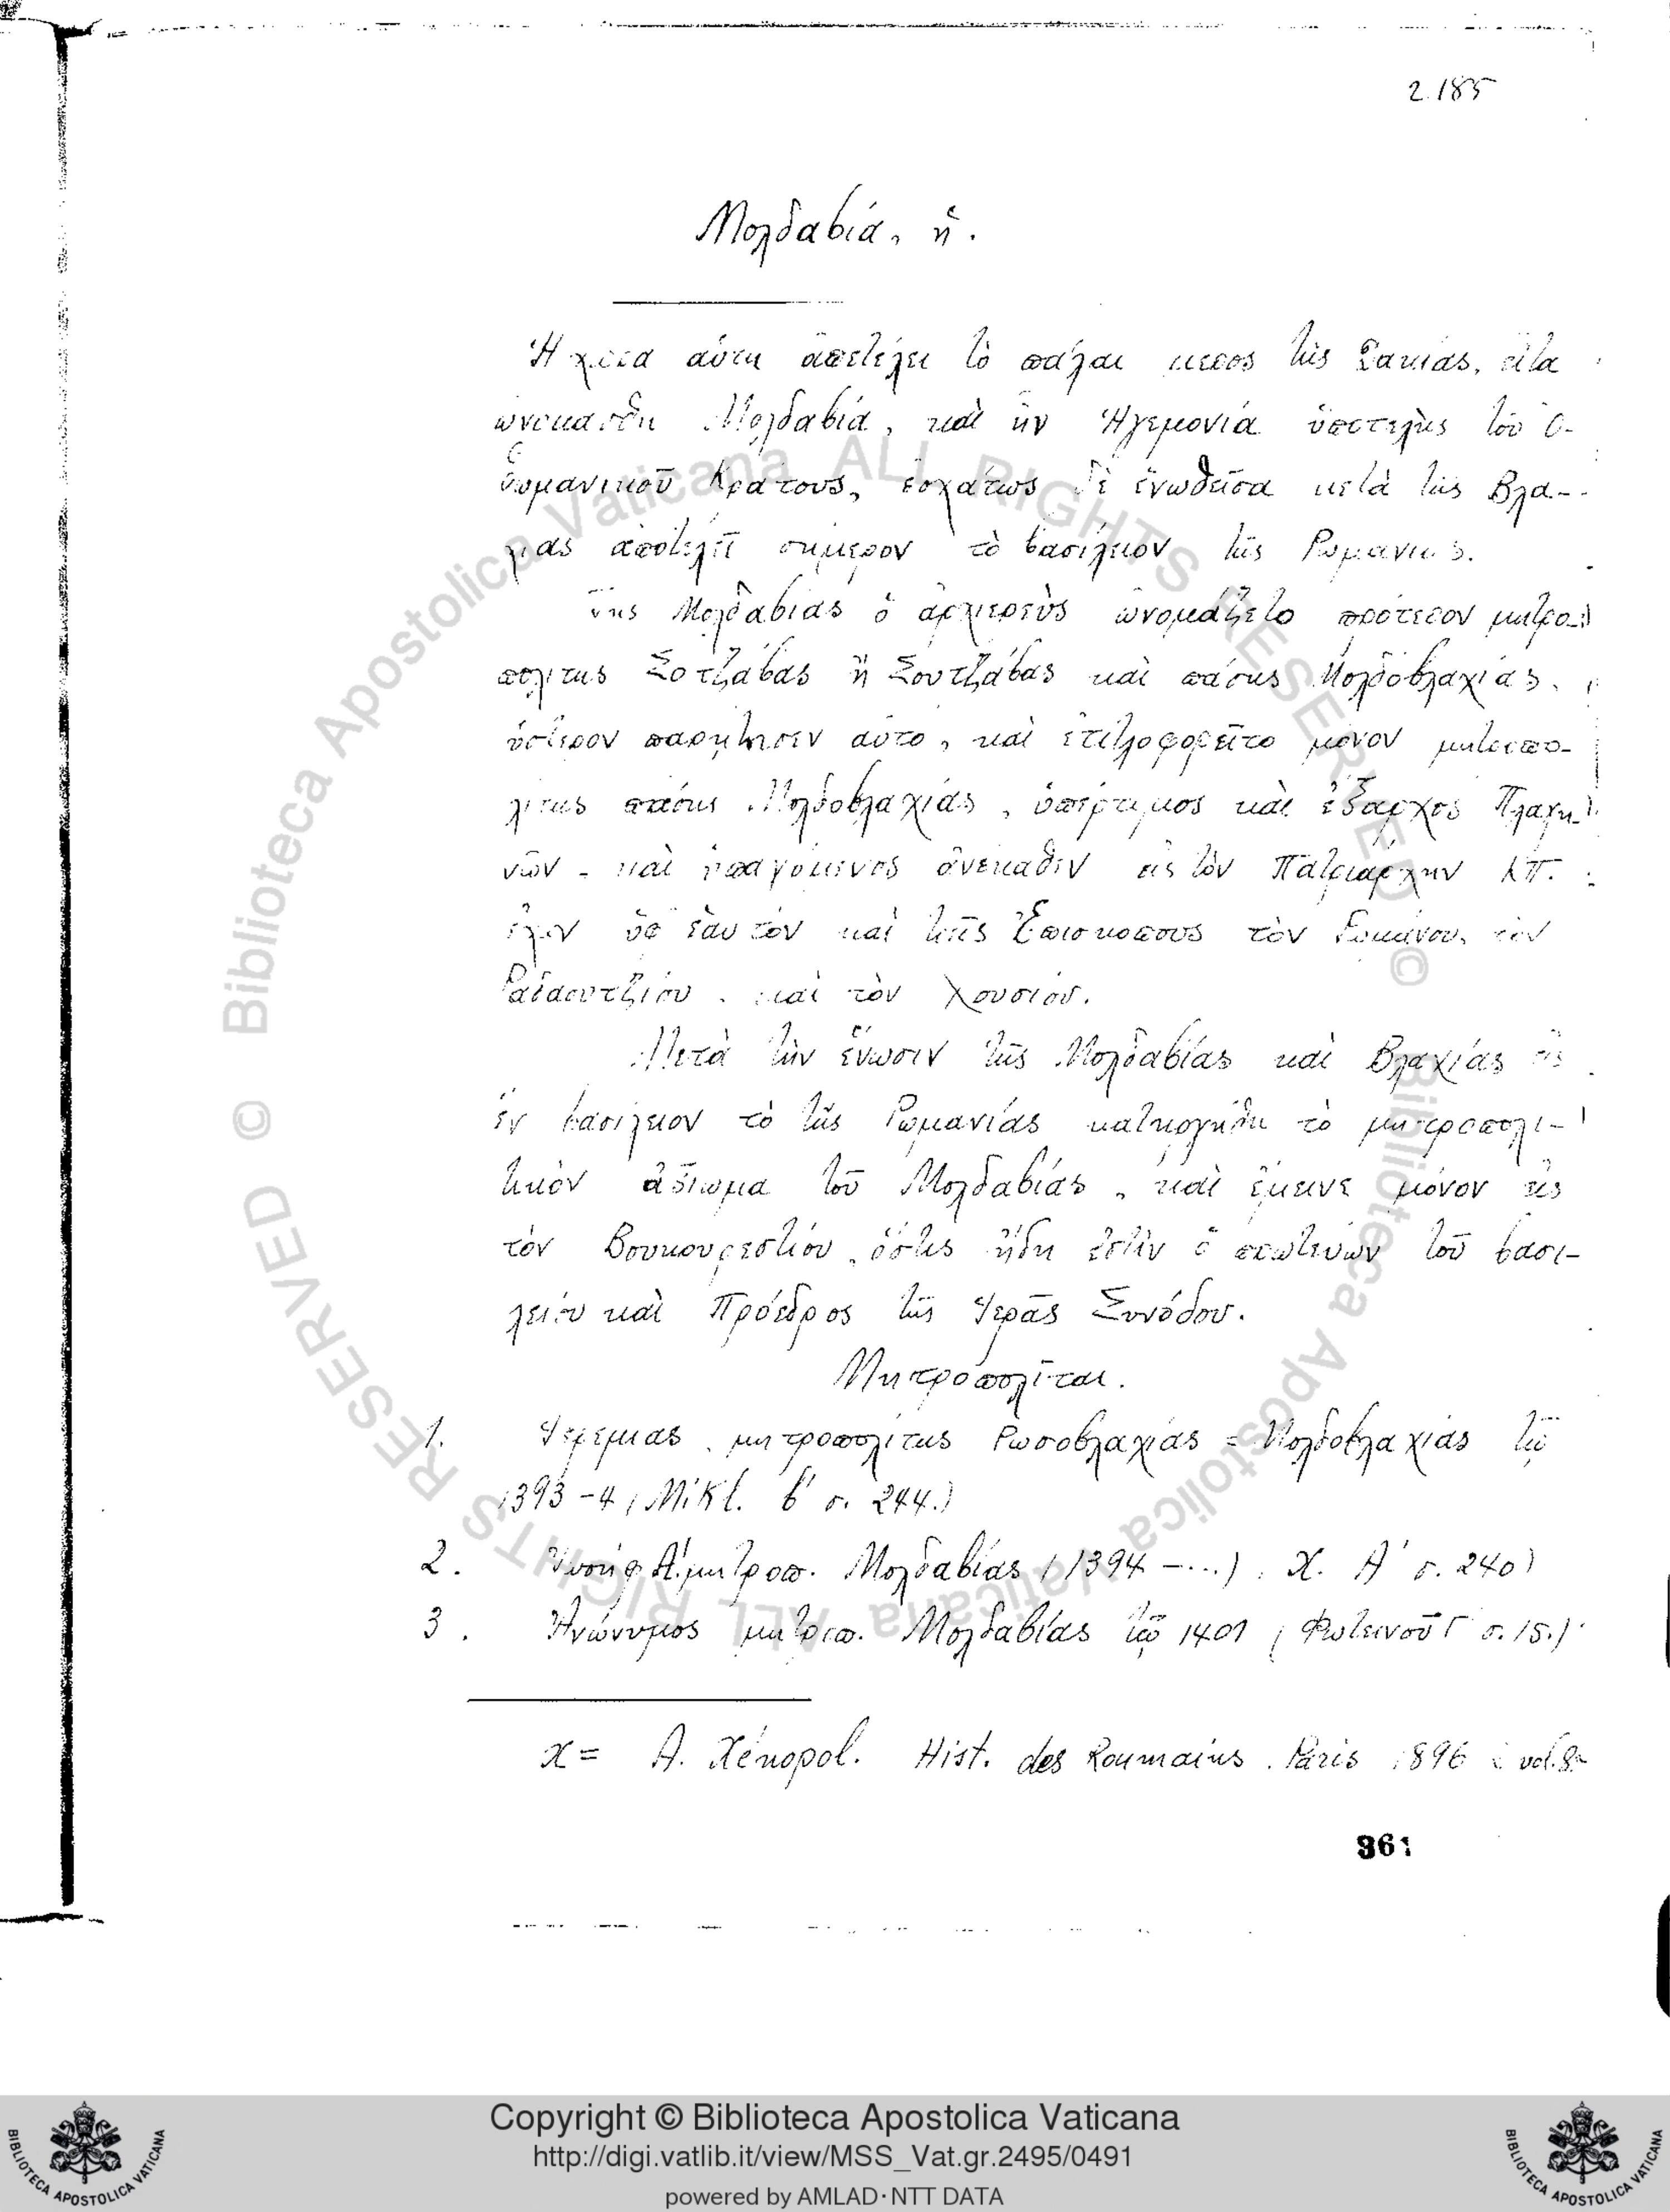 2.185
Μολδαβία, ἡ.
Ἡ χώρα αὕτη ἀπετέλει τὸ πάλαι μέρος τῆς Δακίας, εἶτα
ὠνομάσθη Μολδαβία, καὶ ἦν Ἡγεμονία ὑποτελὴς τοῦ Ὀ-
θωμανικοῦ Κράτους, ἐσχάτως δὲ ἑνωθεῖσα μετὰ τῆς Βλα-
χίας ἀποτελεῖ σήμερον τὸ βασίλειον τῆς Ρωμανίας.
Τῆς Μολδαβίας ὁ ἀρχιερεὺς ὠνομάζετο πρότερον μητρο-
πολίτης Σοτζάβας ἢ Σουτζάβας καὶ πάσης Μολδοβλαχίας.
ὕστερον παρῄτησεν αὐτό, καὶ ἐτιτλοφορεῖτο μόνον μητροπο-
λίτης πάσης Μολδοβλαχίας, ὑπέρτιμος καὶ ἔξαρχος Πλαγη-
νῶν - καὶ ὑπαγόμενος ἀνέκαθεν εἰς τὸν Πατριάρχην ΚΠ.
εἶχεν ὑφ' ἑαυτὸν καὶ τρεῖς Ἐπισκόπους τὸν Ρωμάνου, τὸν
Ραδαουτζίου, καὶ τὸν Χουσίου.
Μετὰ τὴν ἕνωσιν τῆς Μολδαβίας καὶ Βλαχίας εἰς
ἓν βασίλειον τὸ τῆς Ρωμανίας κατηργήθη τὸ μητροπολι-
τικὸν ἀξίωμα τοῦ Μολδαβίας, καὶ ἔμεινε μόνον εἰς
τὸν Βουκουρεστίου, ὅστις ἤδη ἐστὶν ὁ πρωτεύων τοῦ βασι-
λείου καὶ Πρόεδρος τῆς Ἱερᾶς Συνόδου.
Μητροπολῖται.
1. Ἱερεμίας, μητροπολίτης Ρωσοβλαχίας = Μολδοβλαχίας τῷ
1393-4 (Mikl. β' σ. 244.)
2. Ἰωσὴφ Α'. μητροπ. Μολδαβίας (1394 - ...), Χ. Α' σ. 240)
3. Ἀνώνυμος μητροπ. Μολδαβίας τῷ 1401 (Φωτεινοῦ Γ' σ. 15.)
x = A. Xénopol. Hist. des Roumains. Paris 1896
361
© Biblioteca Apostolica Vaticana ALL RIGHTS RESERVED
© Biblioteca Apostolica Vaticana ALL RIGHTS RESERVED
Copyright © Biblioteca Apostolica Vaticana
http://digi.vatlib.it/view/MSS_Vat.gr.2495/0491
powered by AMLAD·NTT DATA
BIBLIOTECA APOSTOLICA VATICANA
BIBLIOTECA APOSTOLICA VATICANA